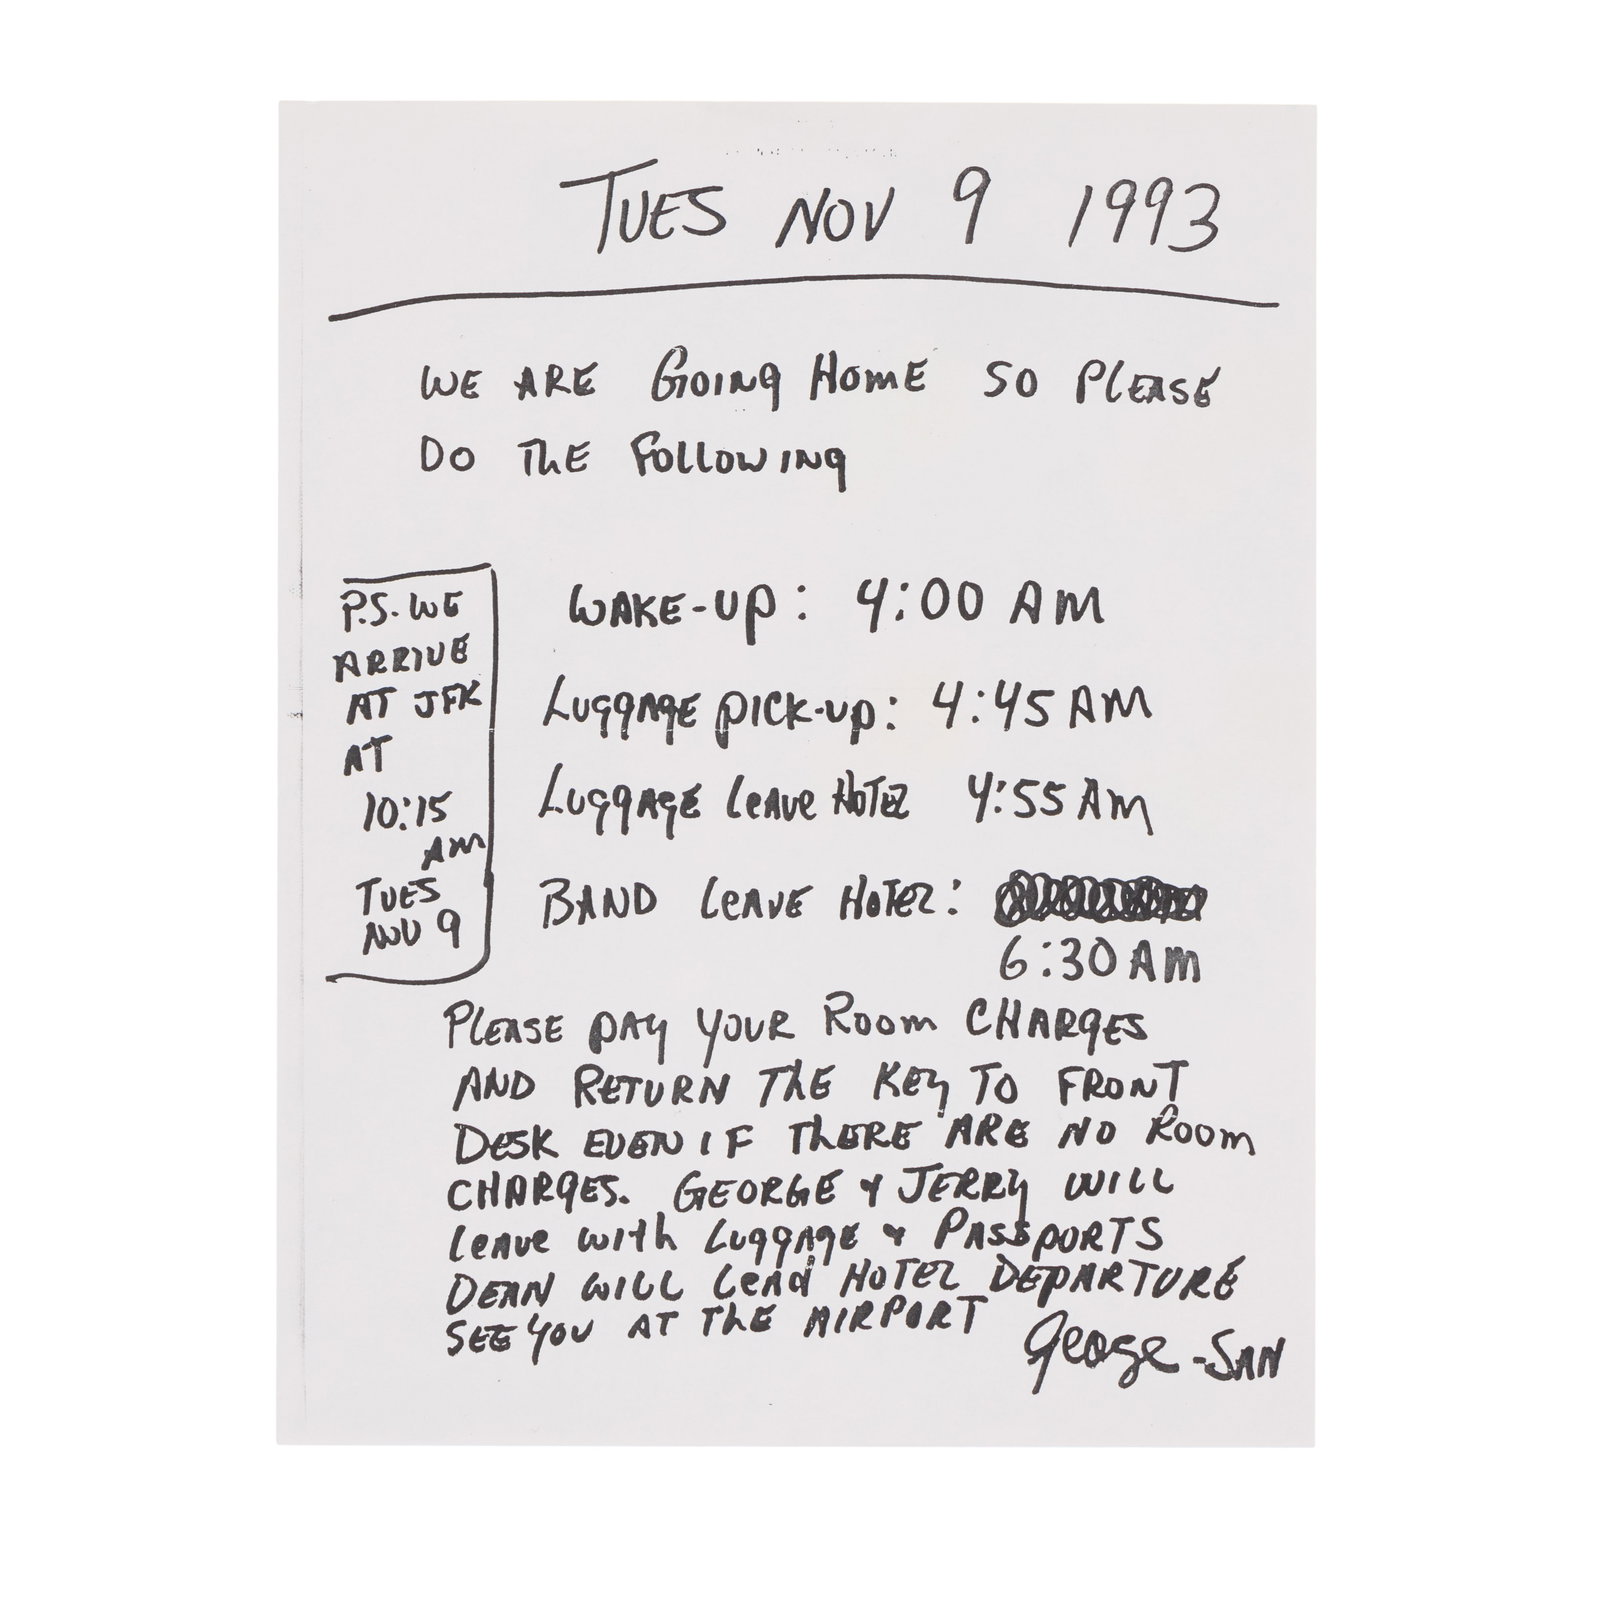 TUES NOV 9 1993
WE ARE GOING HOME SO PLEASE
DO THE FOLLOWING
P.S. WE
ARRIVE
AT JFK
AT
10:15
AM
TUES
NOV 9
WAKE-UP: 4:00 AM
LUGGAGE PICK-UP: 4:45 AM
LUGGAGE LEAVE HOTEL 4:55 AM
BAND LEAVE HOTEL:
6:30 AM
PLEASE PAY YOUR ROOM CHARGES
AND RETURN THE KEY TO FRONT
DESK EVEN IF THERE ARE NO ROOM
CHARGES. GEORGE & JERRY WILL
LEAVE WITH LUGGAGE & PASSPORTS
DEAN WILL LEAD HOTEL DEPARTURE
SEE YOU AT THE AIRPORT
George-SAN